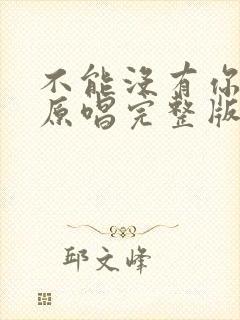 不能没有你
原唱完整版
邱文峰